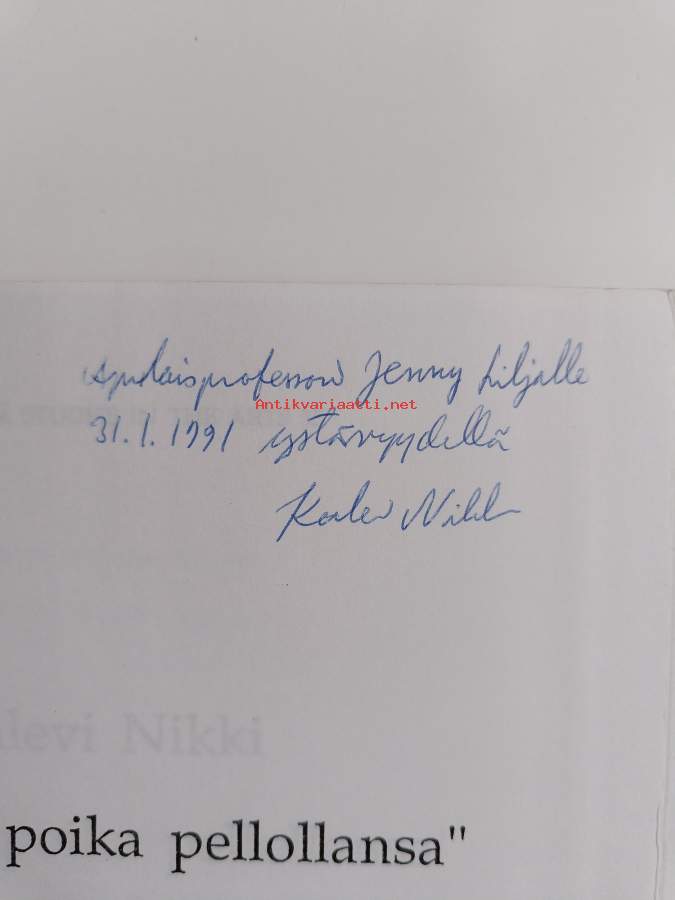 apulaisprofessori Jenny Liljalle
Antikvariaatti.net
31.1.1991 ystävyydellä
Kalevi Nikki
levi Nikki
poika pellollansa"